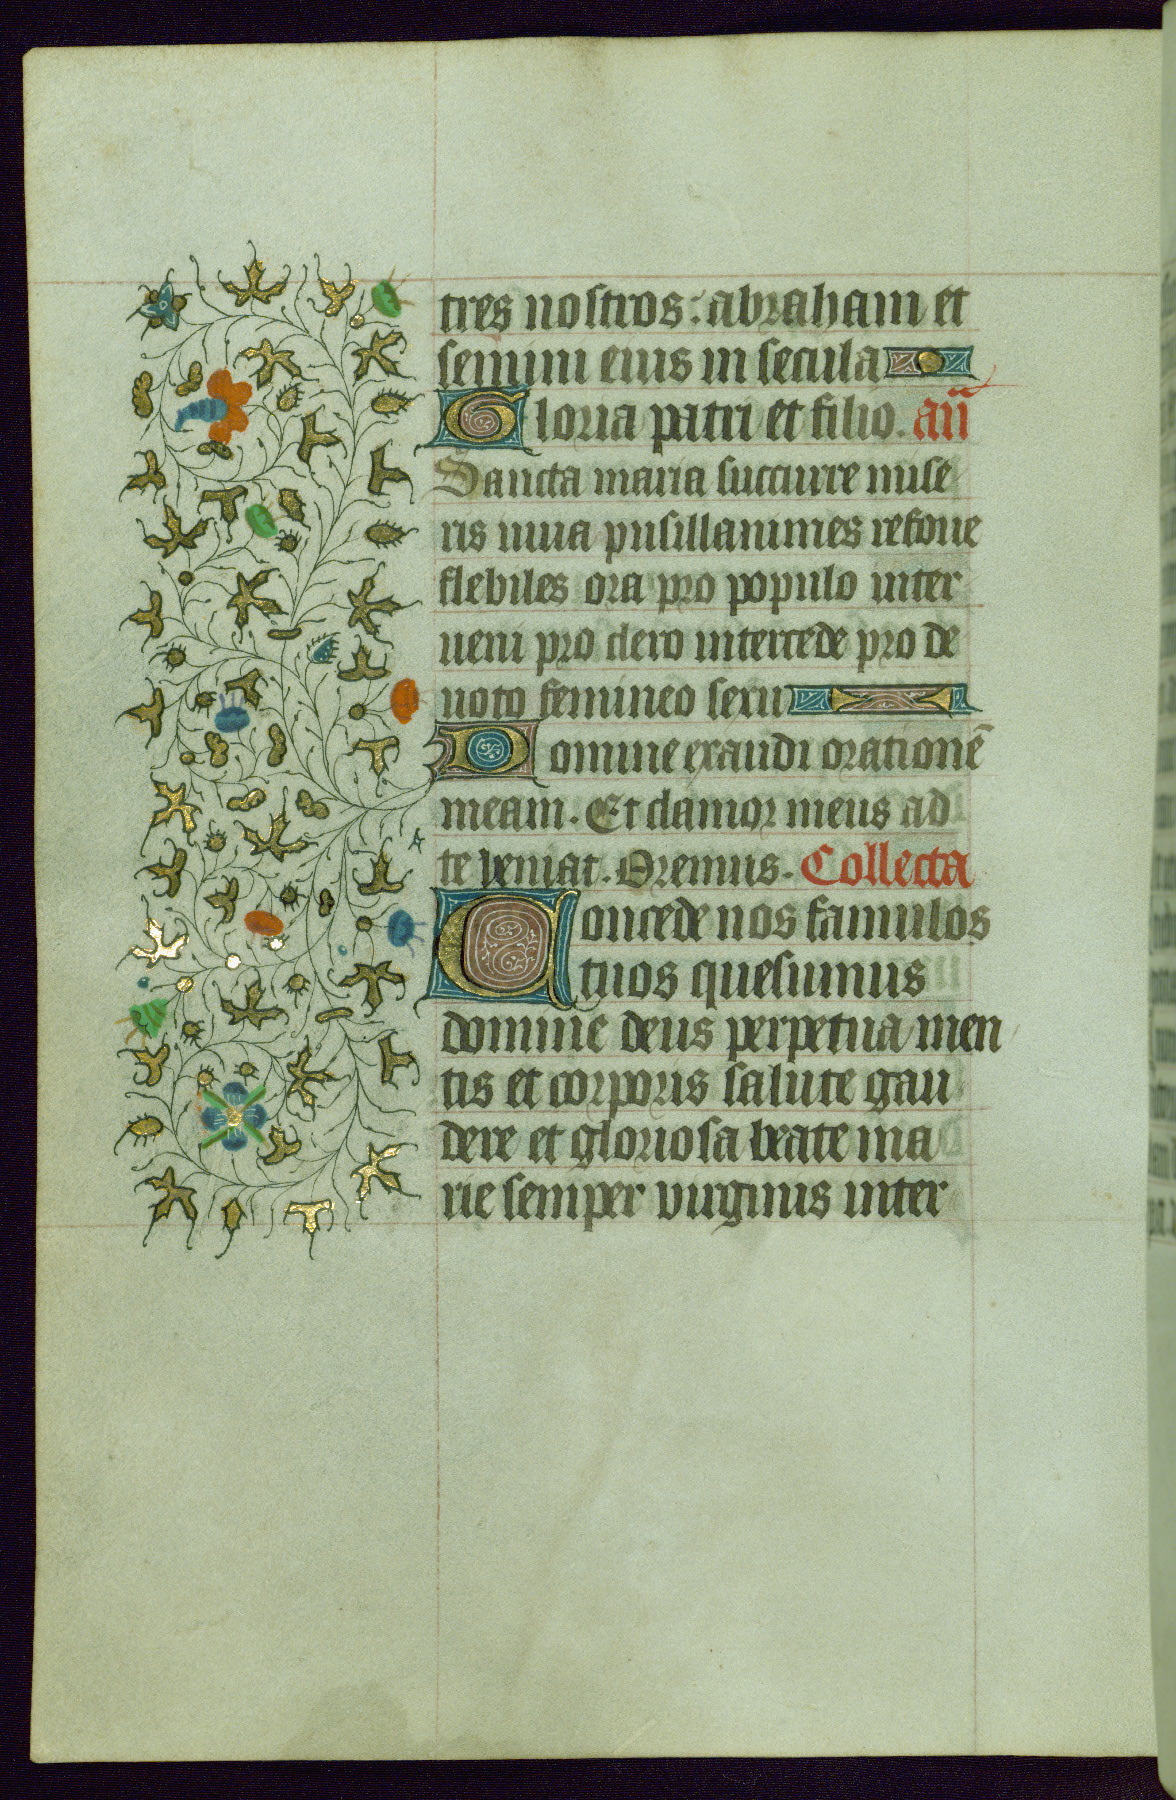 tres nostros: abraham et
semini eius in secula
Gloria patri et filio. an̄
Sancta maria succurre mise
ris iuua pusillanimes refoue
flebiles ora pro populo inter
ueni pro clero intercede pro de
uoto femineo sexu
Domine exaudi orationē
meam. Et clamor meus ad
te veniat. Oremus. Collecta
Concede nos famulos
tuos quesumus
domine deus perpetua men
tis et corporis salute gau
dere et gloriosa beate ma
rie semper virginis inter